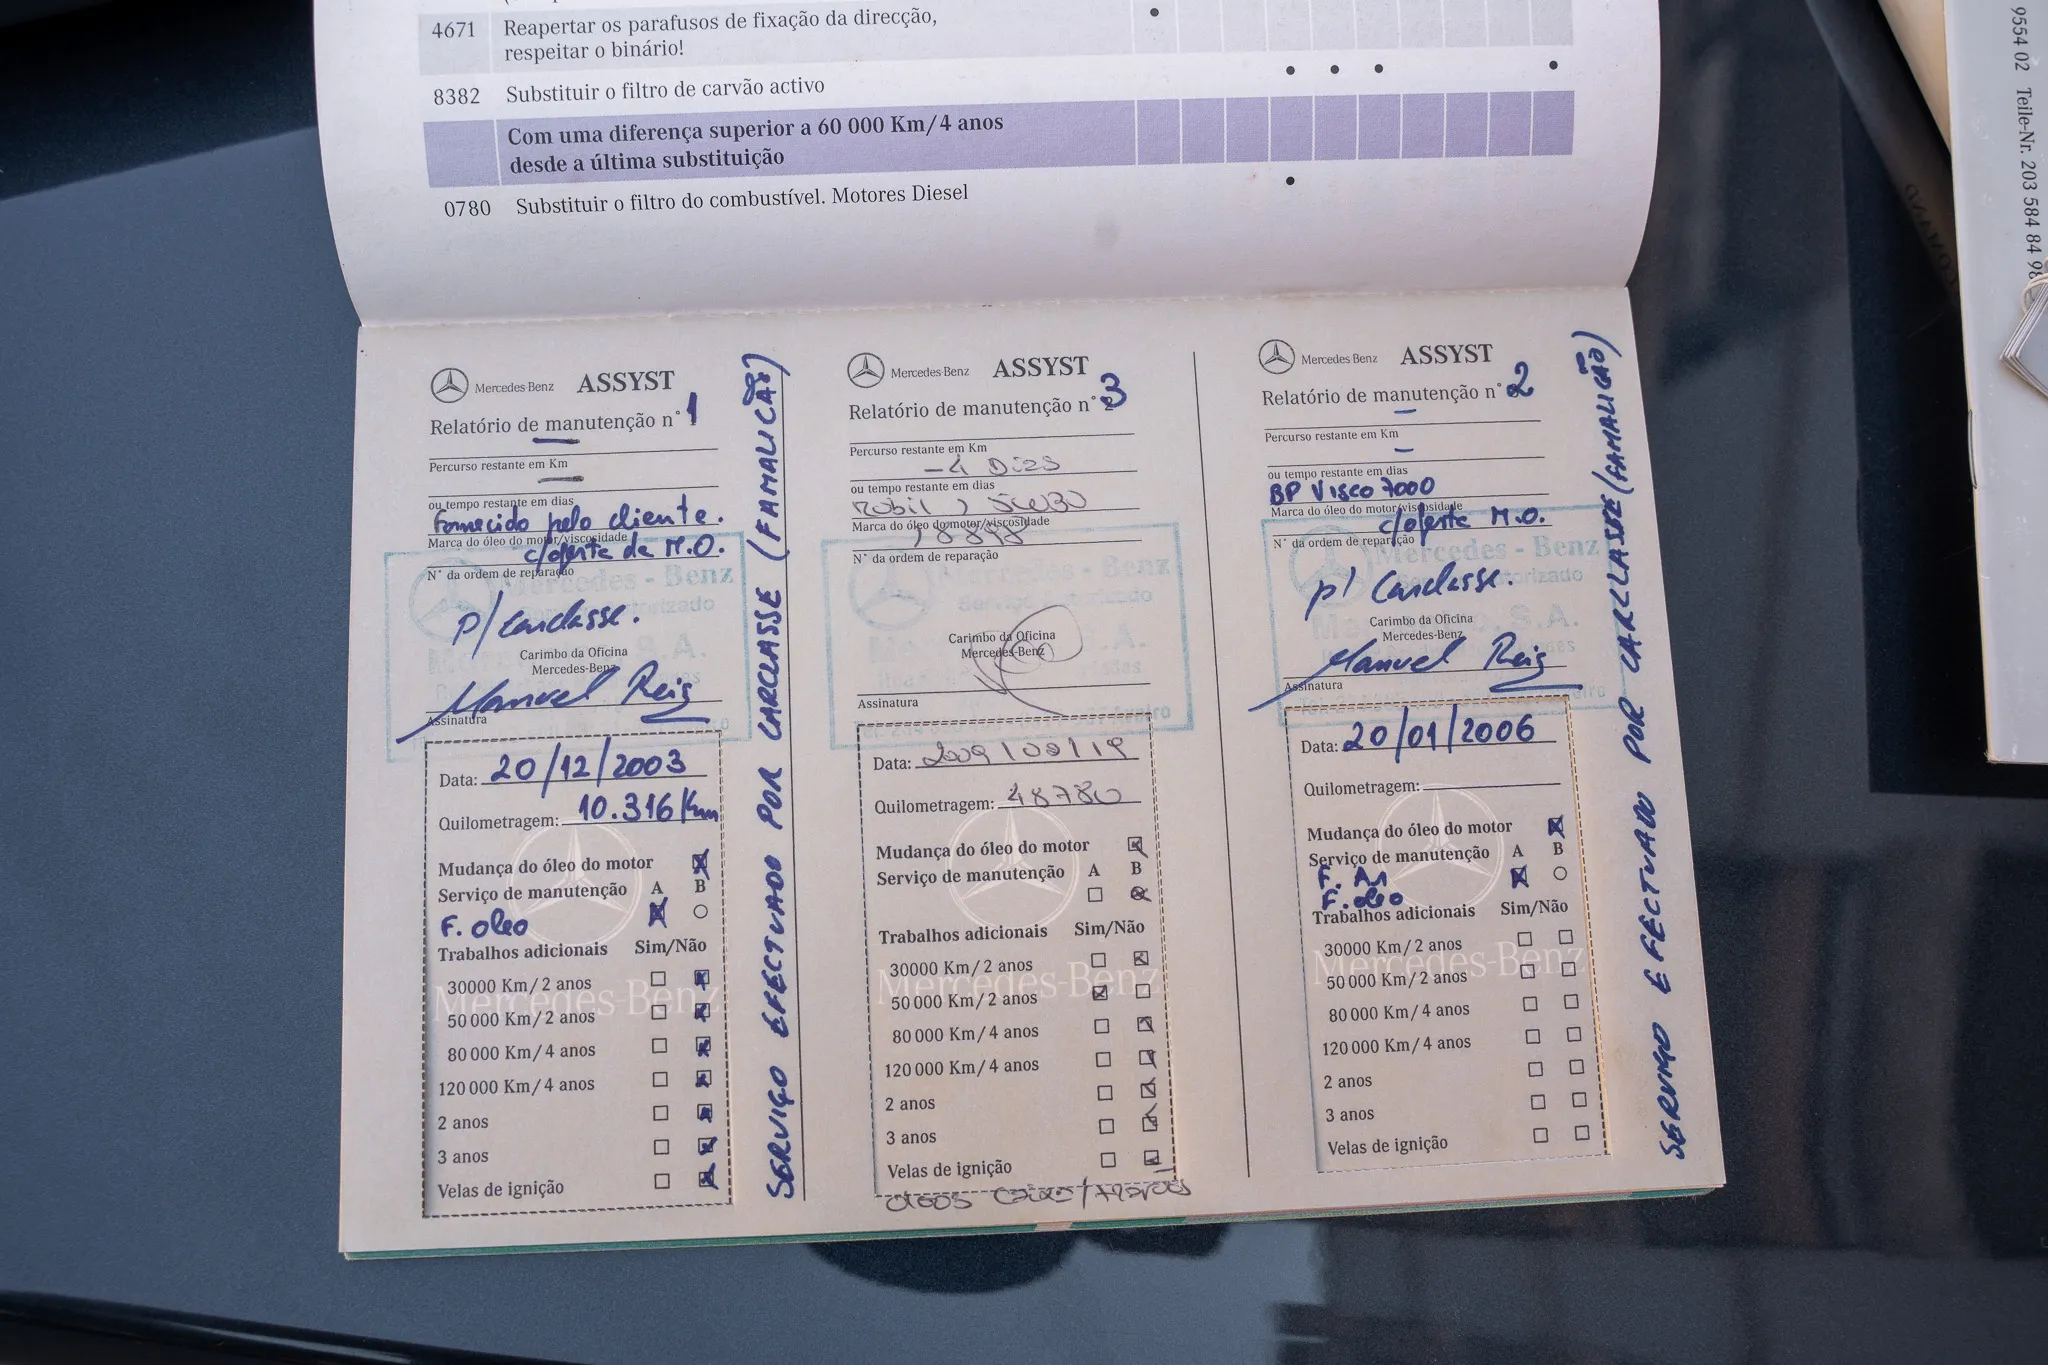 4671 Reapertar os parafusos de fixação da direcção,
respeitar o binário!
8382 Substituir o filtro de carvão activo
Com uma diferença superior a 60 000 Km/4 anos
desde a última substituição
0780 Substituir o filtro do combustível. Motores Diesel
Mercedes-Benz ASSYST
Relatório de manutenção n° 1
Percurso restante em Km
ou tempo restante em dias
Fornecido pelo cliente.
Marca do óleo do motor/viscosidade
c/oferta da M.O.
N° da ordem de reparação
Mercedes - Benz
p/ Carclasse.
Carimbo da Oficina
Mercedes-Benz
Manuel Reis
Assinatura
Data: 20/12/2003
Quilometragem: 10.316/Km
Mudança do óleo do motor
Serviço de manutenção A B
F. oleo
Trabalhos adicionais Sim/Não
30000 Km/2 anos
50 000 Km/2 anos
80 000 Km/4 anos
120 000 Km/4 anos
2 anos
3 anos
Velas de ignição
Mercedes-Benz
SERVIÇO EFECTUADO POR CARCLASSE (FAMALICÃO)
Mercedes-Benz ASSYST
Relatório de manutenção n° 3
Percurso restante em Km
-4 Dias
ou tempo restante em dias
Mobil 1 5W30
Marca do óleo do motor/viscosidade
N° da ordem de reparação
Mercedes - Benz
Carimbo da Oficina
Mercedes-Benz
Assinatura
Data:
Quilometragem: 48780
Mudança do óleo do motor
Serviço de manutenção A B
Trabalhos adicionais Sim/Não
30000 Km/2 anos
50 000 Km/2 anos
80 000 Km/4 anos
120 000 Km/4 anos
2 anos
3 anos
Velas de ignição
Mercedes-Benz
Mercedes-Benz ASSYST
Relatório de manutenção n° 2
Percurso restante em Km
ou tempo restante em dias
BP Visco 7000
Marca do óleo do motor/viscosidade
c/oferta M.O.
N° da ordem de reparação
Mercedes - Benz
p/ Carclasse.
Carimbo da Oficina
Mercedes-Benz
Manuel Reis
Assinatura
Data: 20/01/2006
Quilometragem:
Mudança do óleo do motor
Serviço de manutenção A B
F. Ar
F. oleo
Trabalhos adicionais Sim/Não
30000 Km/2 anos
50 000 Km/2 anos
80 000 Km/4 anos
120 000 Km/4 anos
2 anos
3 anos
Velas de ignição
Mercedes-Benz
SERVIÇO EFECTUADO POR CARCLASSE (FAMALICÃO)
9554 02 Teile-Nr. 203 584 84 98
COMAND